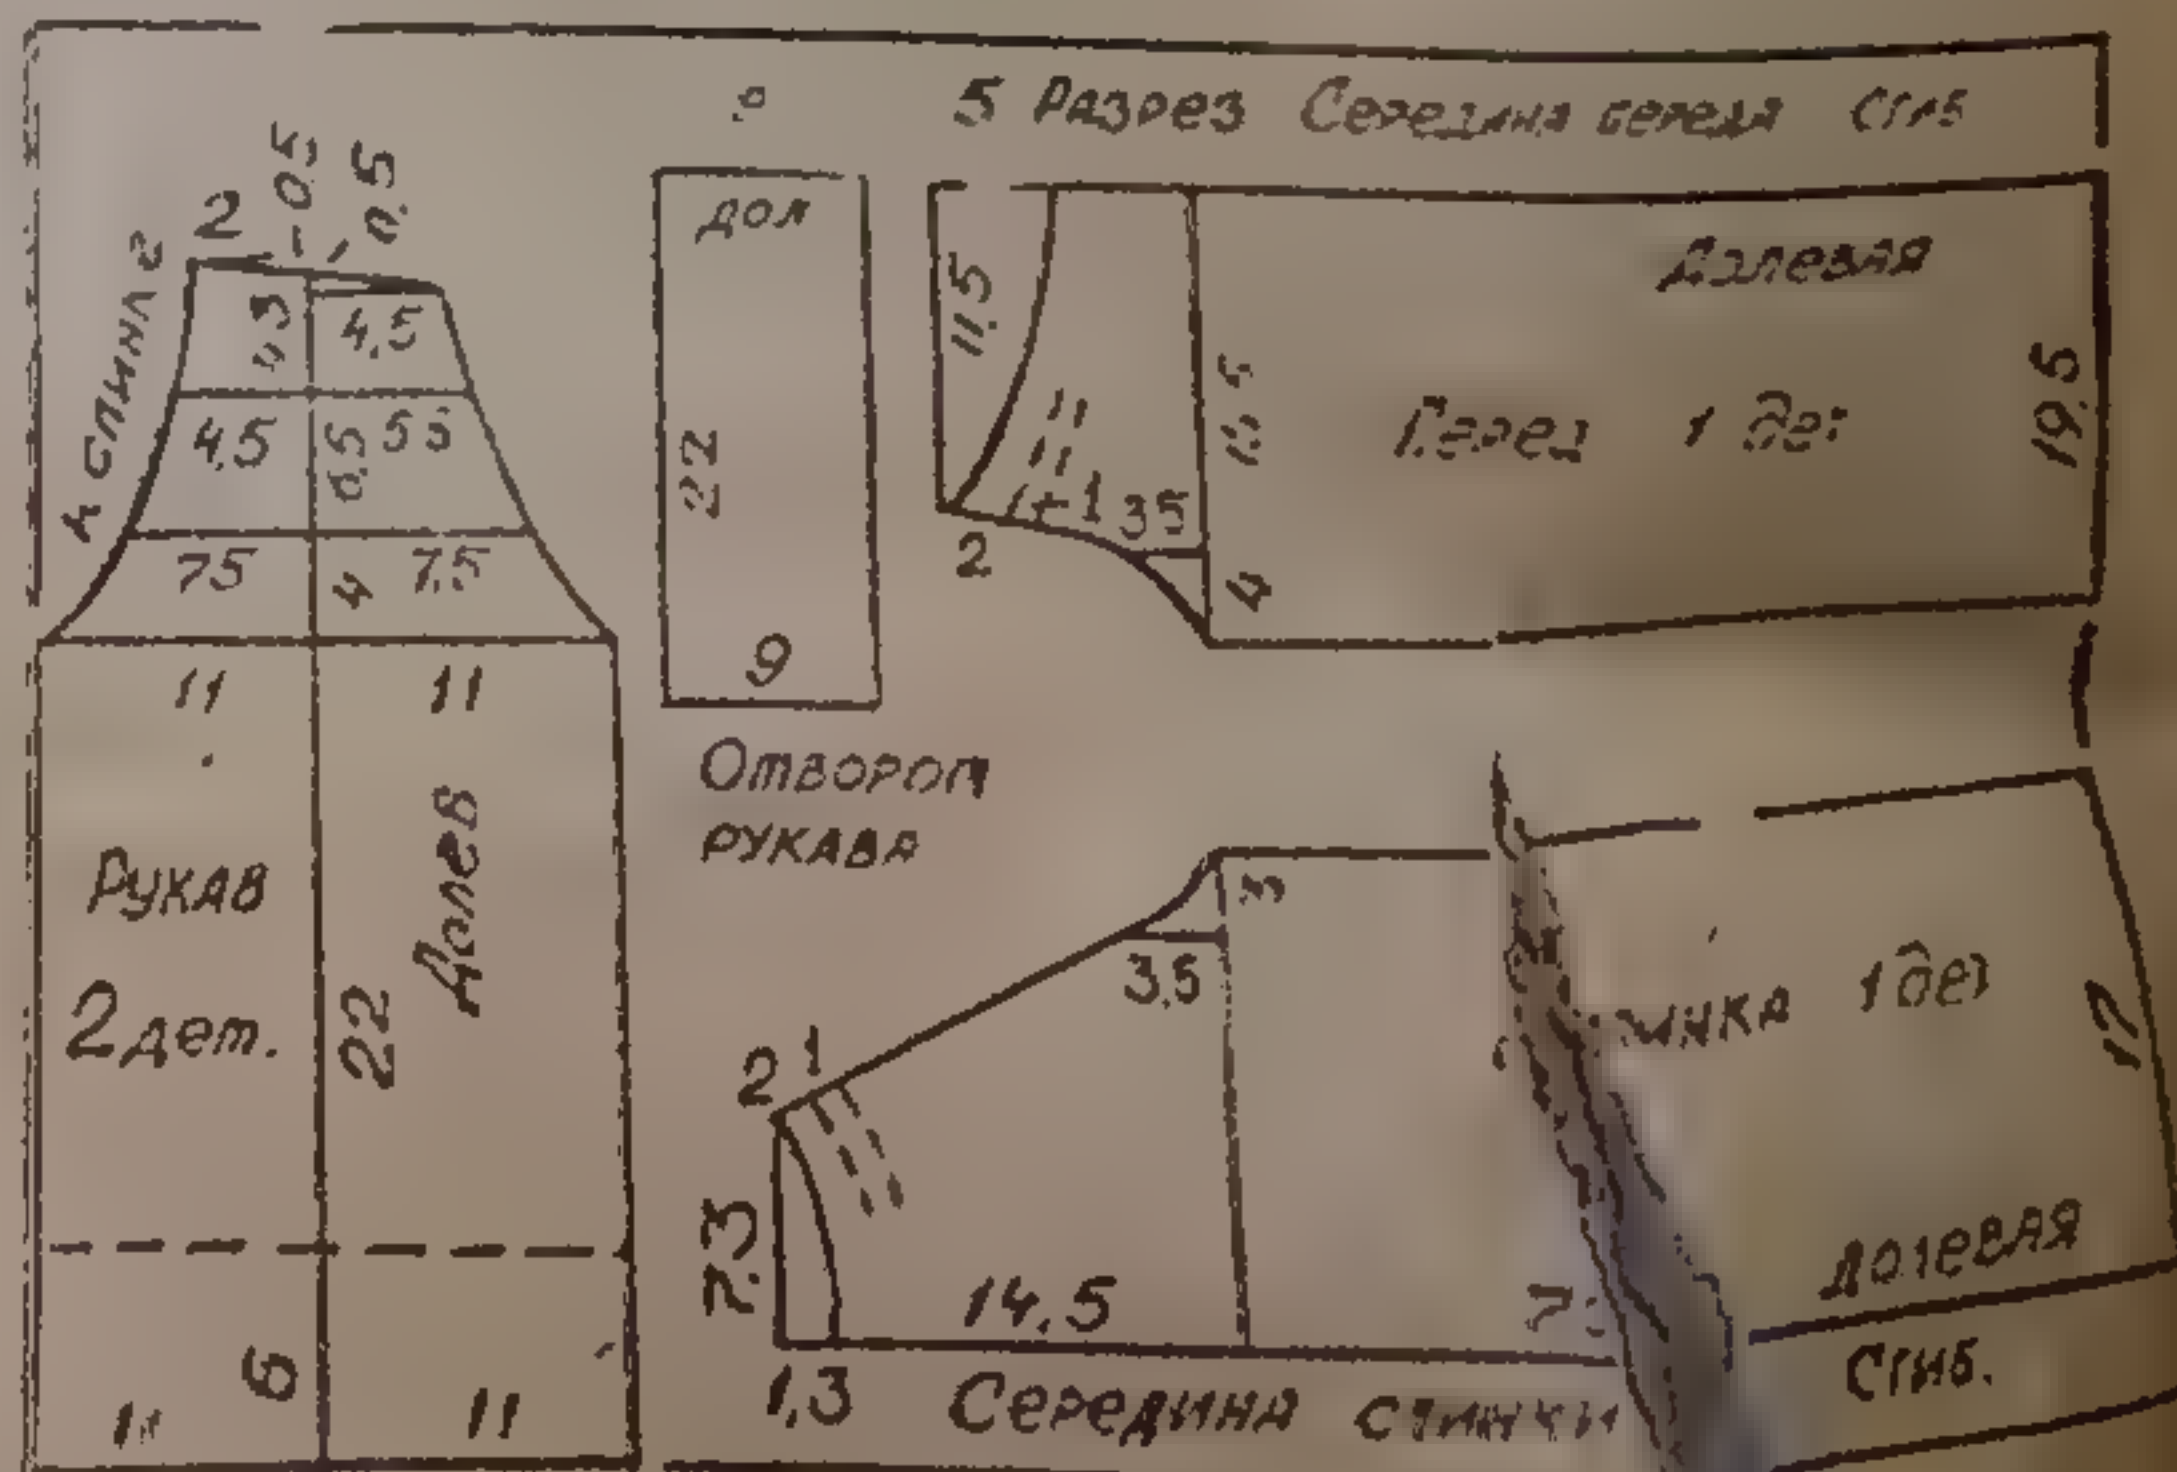 5 Разрез Середина переда Сгиб
2
0.5
0.5
к спинке
4.5
4.5
5.5
7.5
4
7.5
11
11
Рукав
2 дет.
22
Долев
6
11
11
дол
22
9
Отворот
рукава
11.5
2
1
3.5
4
Долевая
Перед 1 дет
19.5
3
3.5
2 1
7.3
14.5
1,3 Середина спинки
1 дет
долевая
Сгиб.